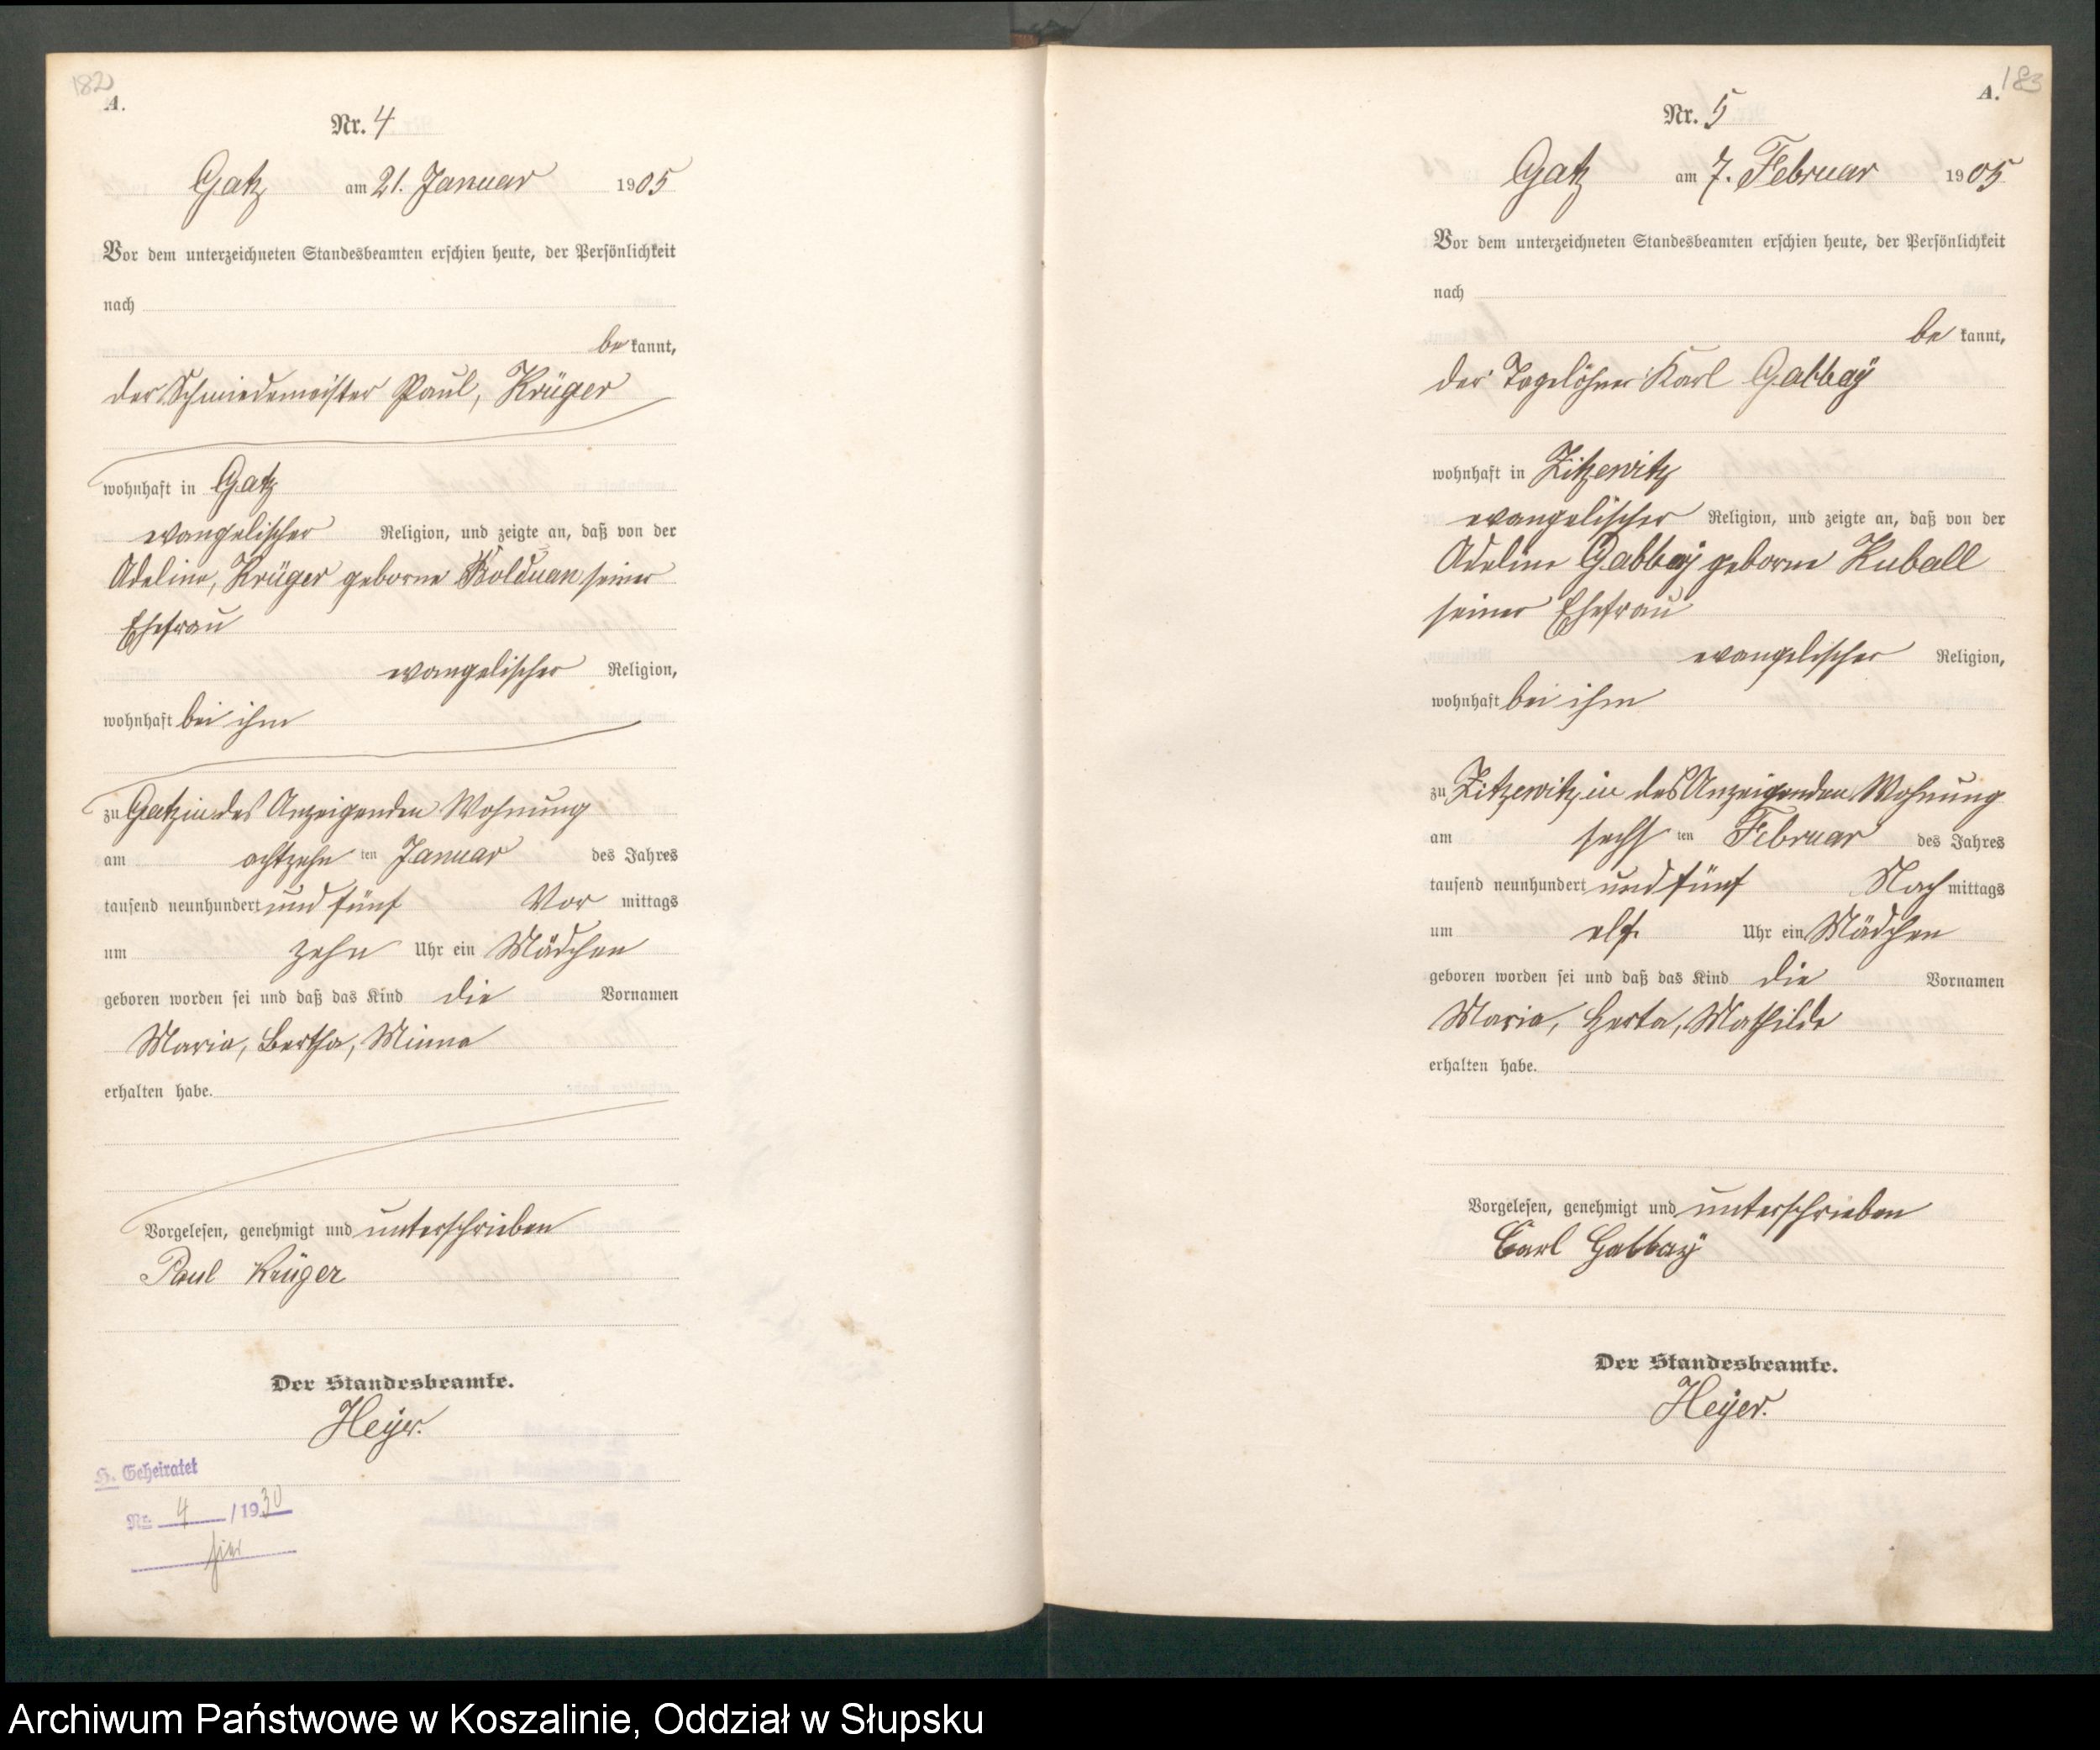 182
A.
Nr. 4
Gatz am 21. Januar 1905
Vor dem unterzeichneten Standesbeamten erschien heute, der Persönlichkeit
nach
be kannt,
der Schmiedemeister Paul, Krüger
wohnhaft in Gatz
evangelischer Religion, und zeigte an, daß von der
Adeline, Krüger geborne Kolduan seiner
Ehefrau
evangelischer Religion,
wohnhaft bei ihm
zu Gatz in des Anzeigenden Wohnung
am achtzehn ten Januar des Jahres
tausend neunhundert und fünf Vor mittags
um zehn Uhr ein Mädchen
geboren worden sei und daß das Kind die Vornamen
Maria, Bertha, Minna
erhalten habe.
Vorgelesen, genehmigt und unterschrieben
Paul Krüger
Der Standesbeamte.
Heyer.
H. Geheiratet
Nr. 4 /1930
hier
183
A.
Nr. 5
Gatz am 7. Februar 1905
Vor dem unterzeichneten Standesbeamten erschien heute, der Persönlichkeit
nach
be kannt,
der Tagelöhner Karl Gabbay
wohnhaft in Zitzewitz
evangelischer Religion, und zeigte an, daß von der
Adeline Gabbay geborne Kuball
seiner Ehefrau
evangelischer Religion,
wohnhaft bei ihm
zu Zitzewitz, in des Anzeigenden Wohnung
am sechs ten Februar des Jahres
tausend neunhundert und fünf Nach mittags
um elf. Uhr ein Mädchen
geboren worden sei und daß das Kind die Vornamen
Maria, Herta, Mathilde
erhalten habe.
Vorgelesen, genehmigt und unterschrieben
Carl Gabbaÿ
Der Standesbeamte.
Heyer.
Archiwum Państwowe w Koszalinie, Oddział w Słupsku